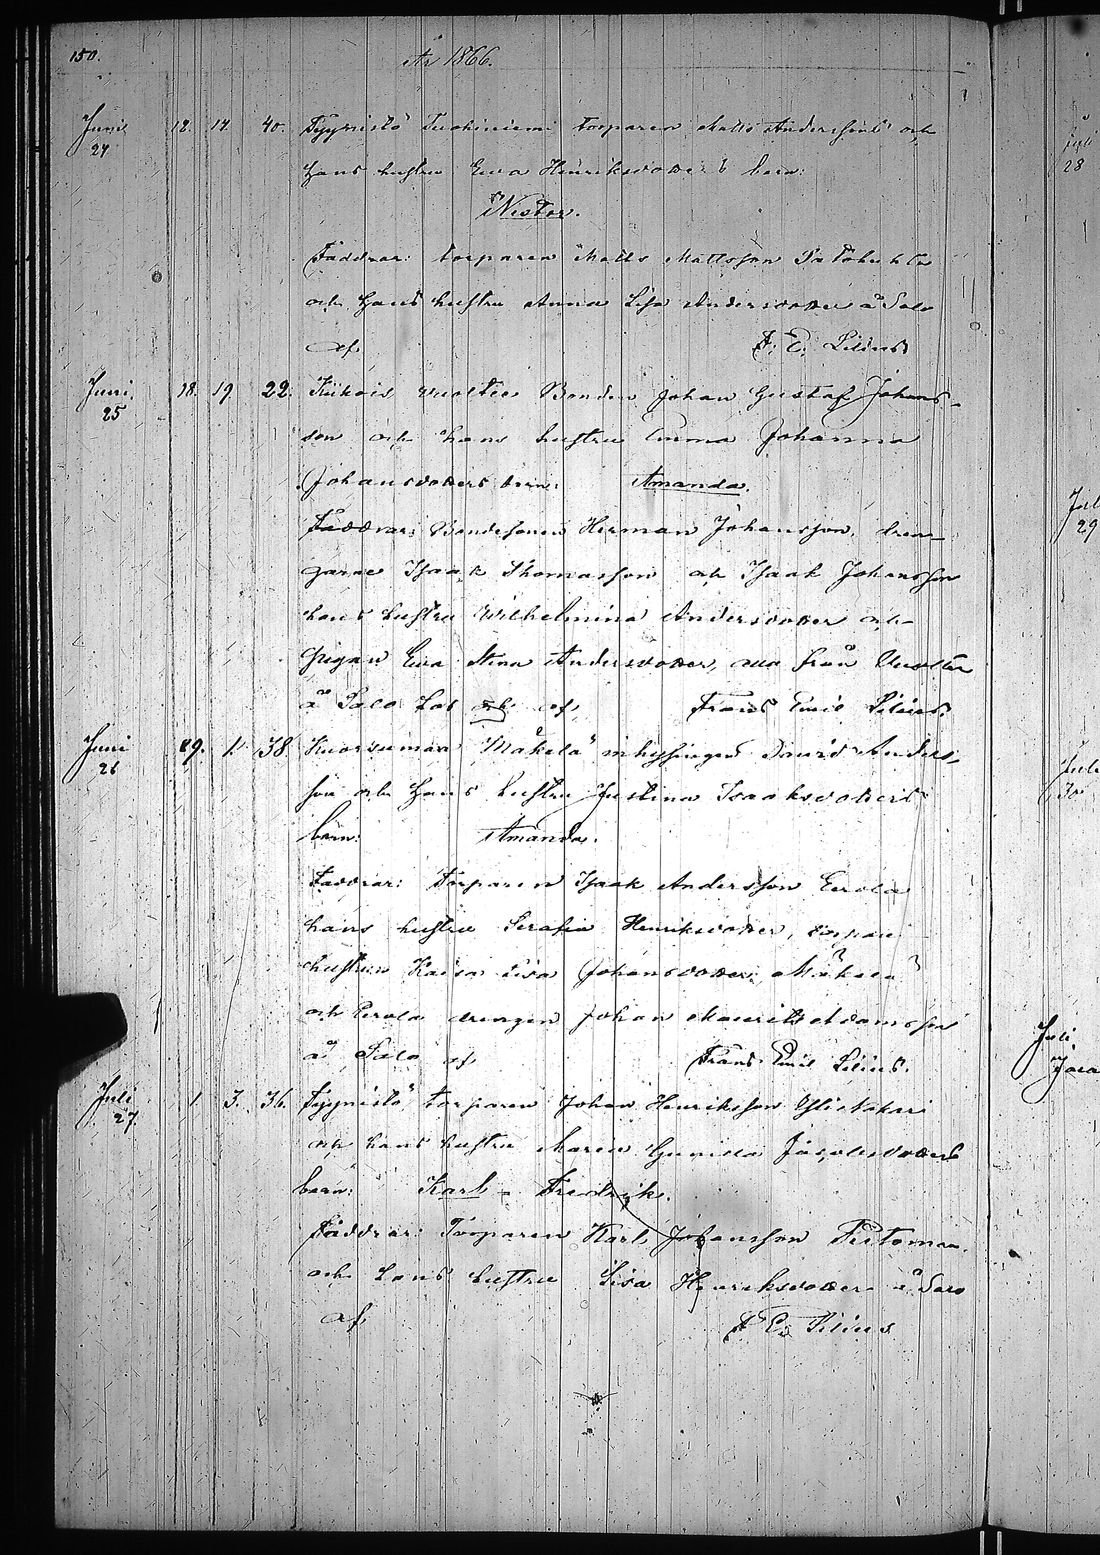 150.
År 1866.
Juni 12. 14. 40. Tyynistö torparen Matts Anderssons och
24
hans hustru Ewa Henriksdotters barn:
Nestor.
Faddrar: torparen Matts Mattsson
och hans hustru Anna Lisa Andersdotter å Salo
af F. E. Lilius
Juni 18. 19. 22. Kukois Wuoltee Bonden Johan Gustaf Johans-
25
son och hans hustru Emma Johanna
Johansdotters barn: Amanda.
Faddrar: Bondesonen Herman Johansson, drän-
garne Isaak Thomasson och Isaak Johansson
hans hustru Wilhelmina Andersdotter och
pigan Ewa Stina Andersdotter, alla från Wuoltee
å Salo af Frans Emil Lilius.
Juni 19. 1. 38 Kuorsumaa Mäkelä inhysingen David Anders-
26
son och hans hustru Justina Isaaksdotters
barn: Amanda.
Faddrar: Torparen Isaak Andersson Eerola
hans hustru Serafia Henriksdotter, torpare
hustrun Kaisa Lisa Johansdotter Mäkelä
och Eerola drengen Johan Maurits Adamsson
å Salo af Frans Emil Lilius.
Juli 1. 3. 36. Tyynistö torparen Johan Henriksson
27.
och hans hustru Maria Gunilla Jacobsdotters
barn: Karl Fredrik.
Faddrar: Torparen Karl Johansson
och hans hustru Lisa Henriksdotter å Salo
af F E Lilius
Juli
28
Juli
29
Juli
30
Juli